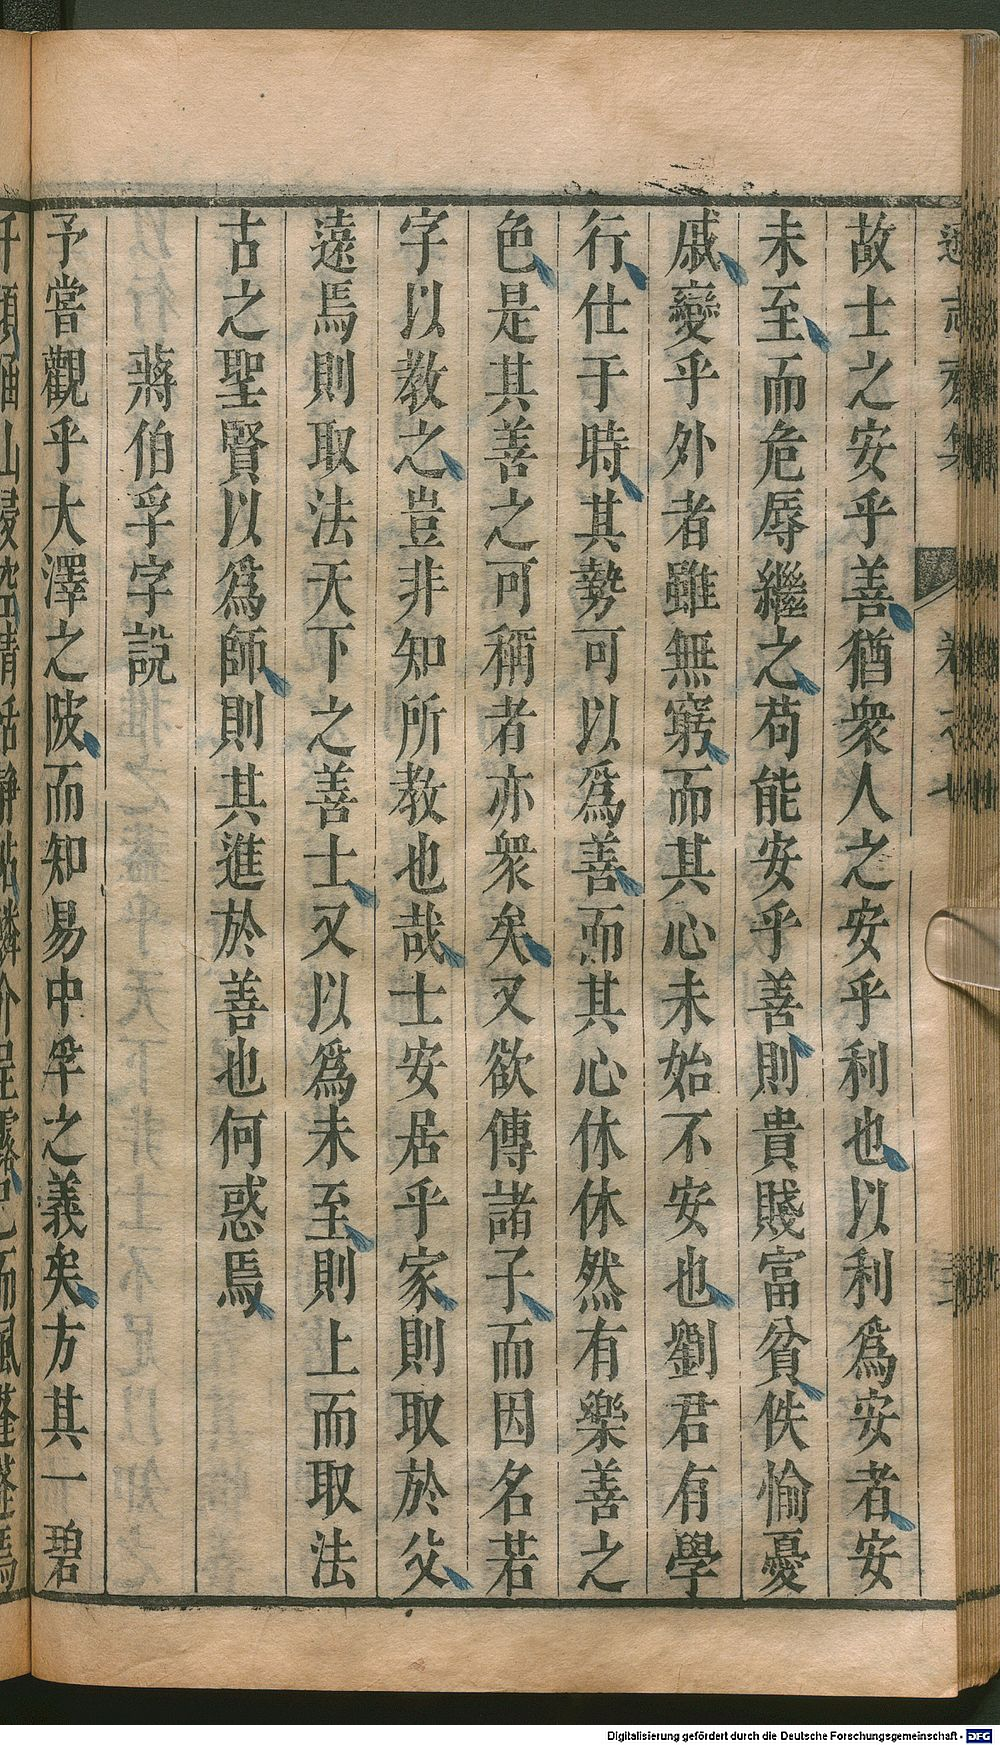 故士之安乎善猶衆人之安乎利也以利爲安者安
未至而危辱繼之苟能安乎善則貴賤富貧佚愉憂
戚變乎外者雖無窮而其心未始不安也劉君有學
行仕于時其勢可以爲善而其心休休然有樂善之
色是其善之可稱者亦衆矣又欲傳諸子而因名若
字以教之豈非知所教也哉士安居乎家則取於父
遠焉則取法天下之善士又以爲未至則上而取法
古之聖賢以爲師則其進於善也何惑焉
蔣伯孚字說
予嘗觀乎大澤之陂而知易中孚之義矣方其一碧
Digitalisierung gefördert durch die Deutsche Forschungsgemeinschaft - DFG